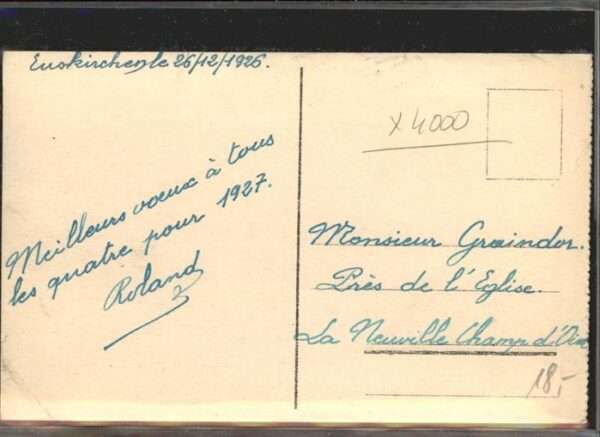 Euskirchen, le 26/12/1926.
x 4000
Meilleurs vœux à tous
les quatre pour 1927.
Roland
Monsieur Graindor.
Près de l'Eglise.
La Neuville Champ d'Oi
18,-